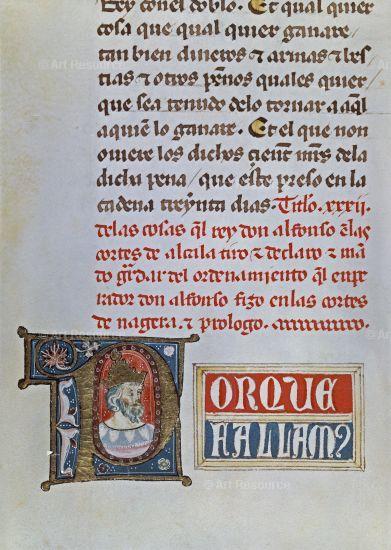 Rey con el doblo. Et qual quier
cosa que qual quier ganare
tan bien dineros τ armas τ bes
tias τ otros p̃nos quales quier
que sea tenudo delo tornar a aq̃l
a quien lo ganare. Et el que non
ouiere los dichos çient mr̃s dela
dicha pena / que este preso en la
cadena treynta dias. Titƚo .xxxii.
delas cosas q̃l rey don alfonso en̄las
cortes de alcala tiro τ declaro τ mã
do gr̃dar del ordenamiento q̃l enpe
rador don alfonso fizo enlas cortes
de nagera. τ prologo.
P
ORQUE
FALLAMOS
© Art Resource
© Art Resource
© Art Resource
© Art Resource
© Art Resource